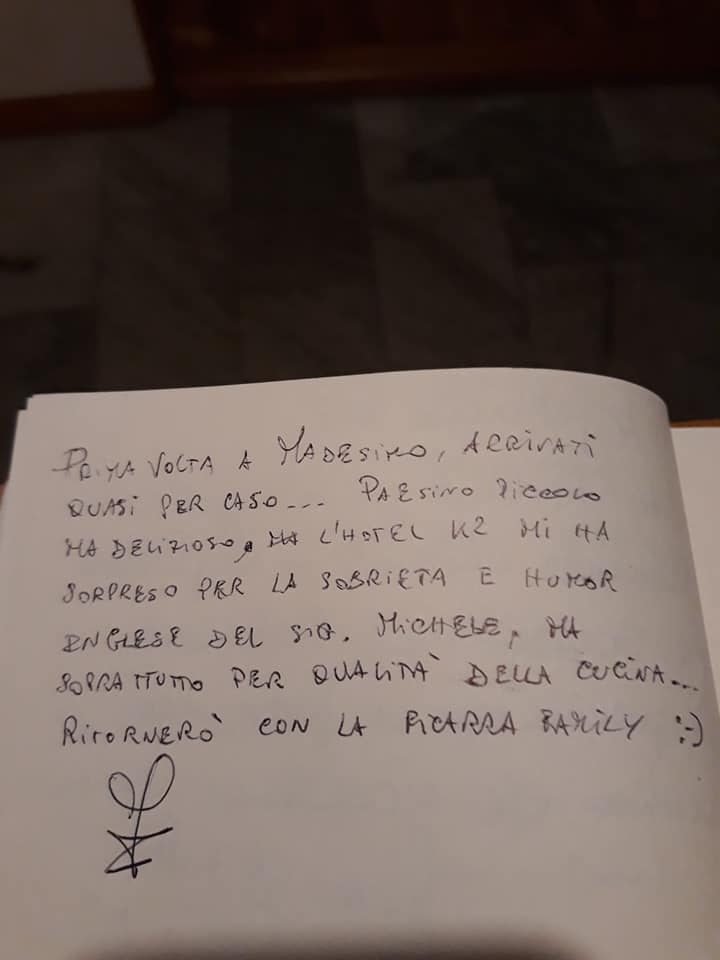 PRIMA VOLTA A MADESIMO, ARRIVATI
QUASI PER CASO... PAESINO PICCOLO
MA DELIZIOSO, MA L'HOTEL K2 MI HA
SORPRESO PER LA SOBRIETA E HUMOR
ENGLESE DEL SIG. MICHELE, MA
SOPRATTUTTO PER QUALITÀ DELLA CUCINA...
RITORNERÒ CON LA PICARRA FAMILY :-)